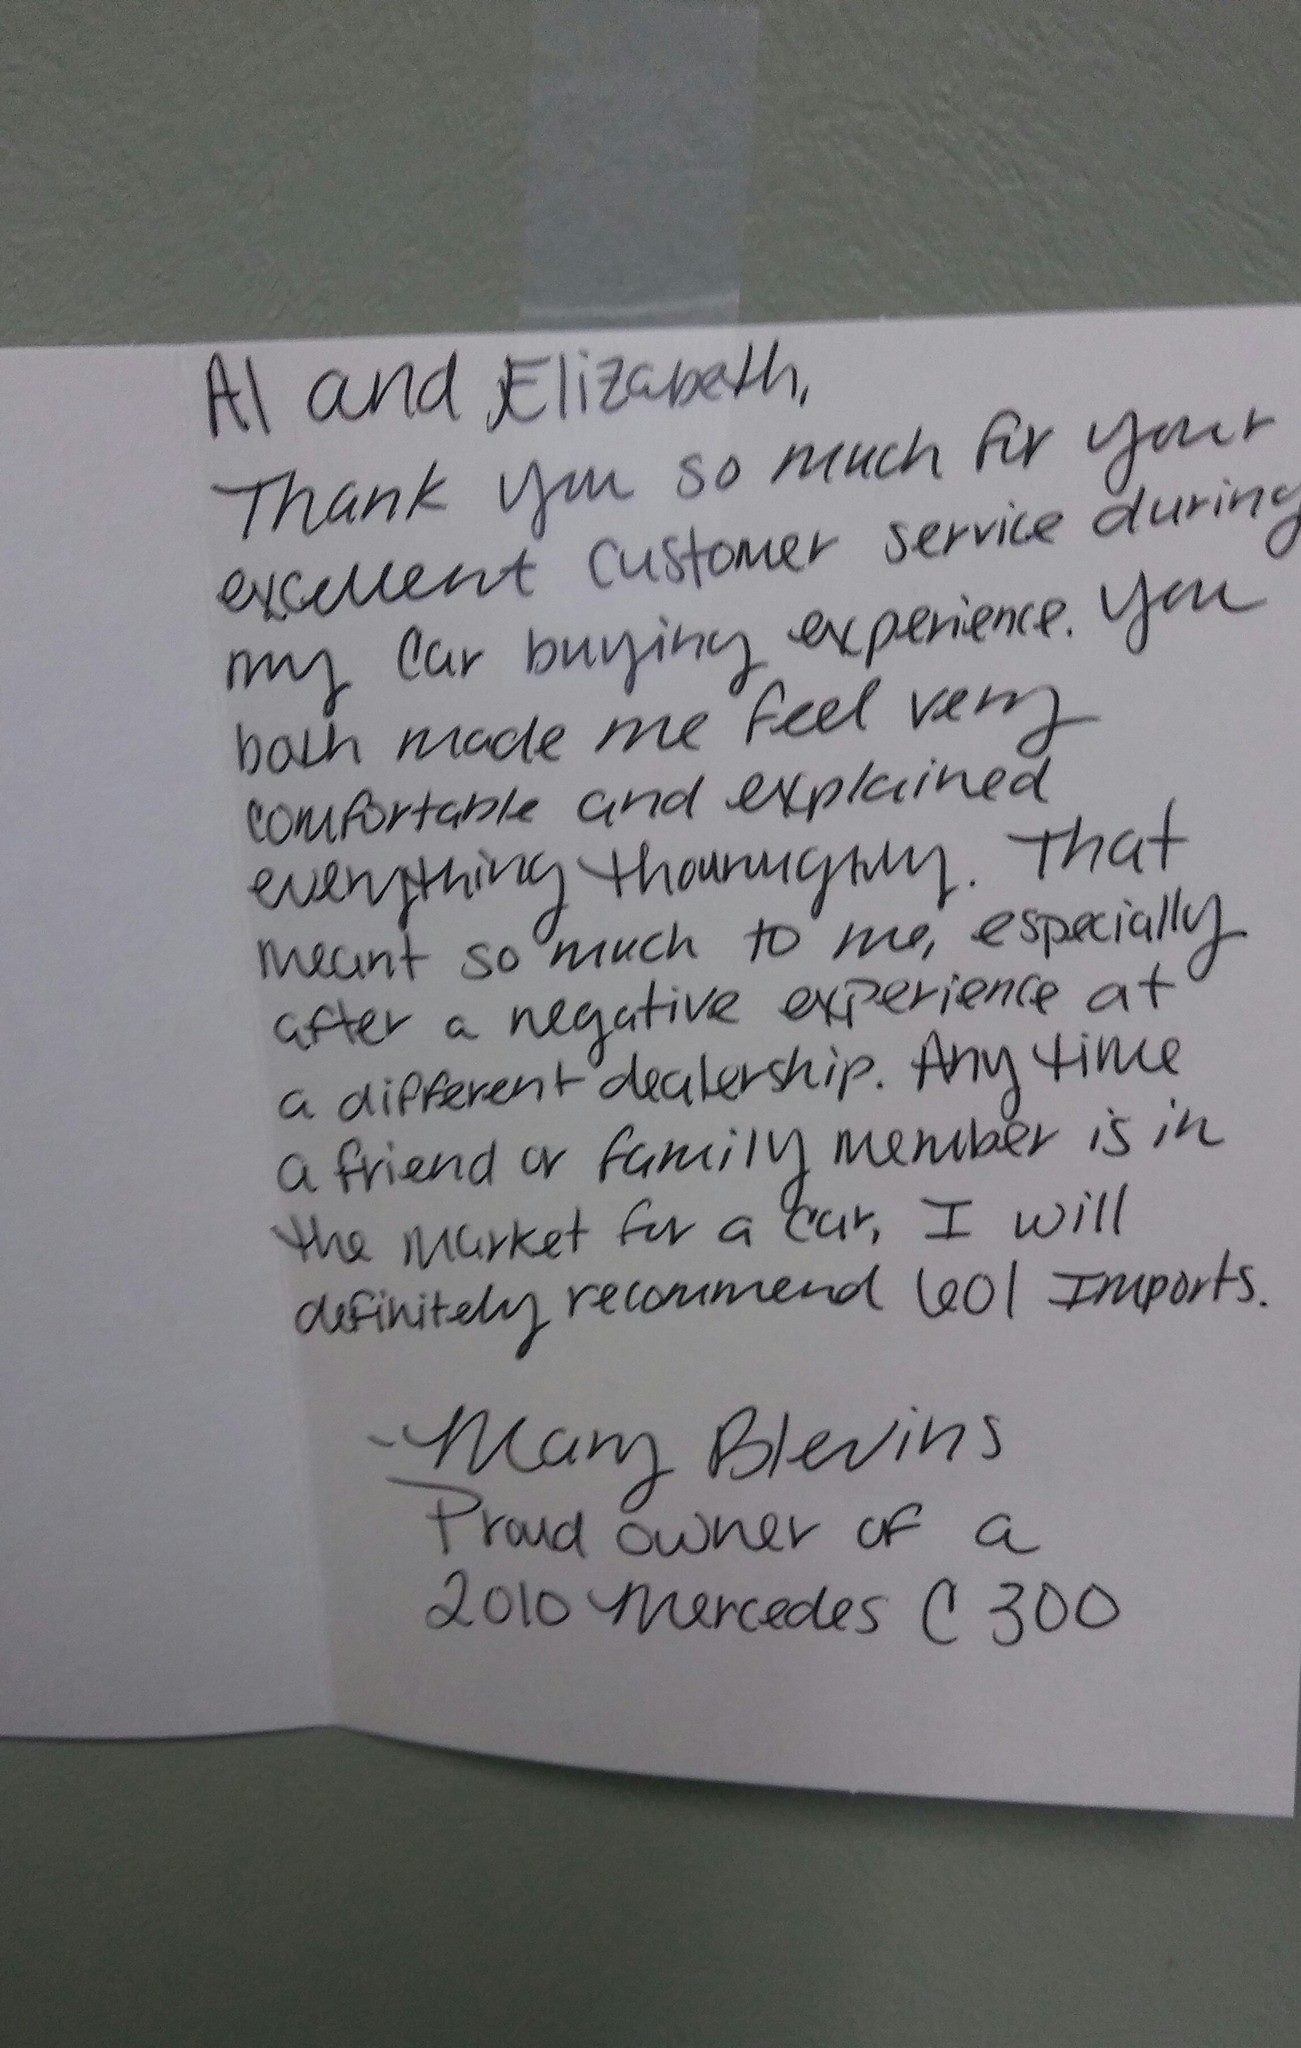 Al and Elizabeth,
Thank you so much for your
excellent customer service during
my car buying experience. You
both made me feel very
comfortable and explained
everything thouroughly. That
meant so much to me, especially
after a negative experience at
a different dealership. Any time
a friend or family member is in
the market for a car, I will
definitely recommend 601 Imports.
-Mary Blevins
Proud owner of a
2010 Mercedes C 300